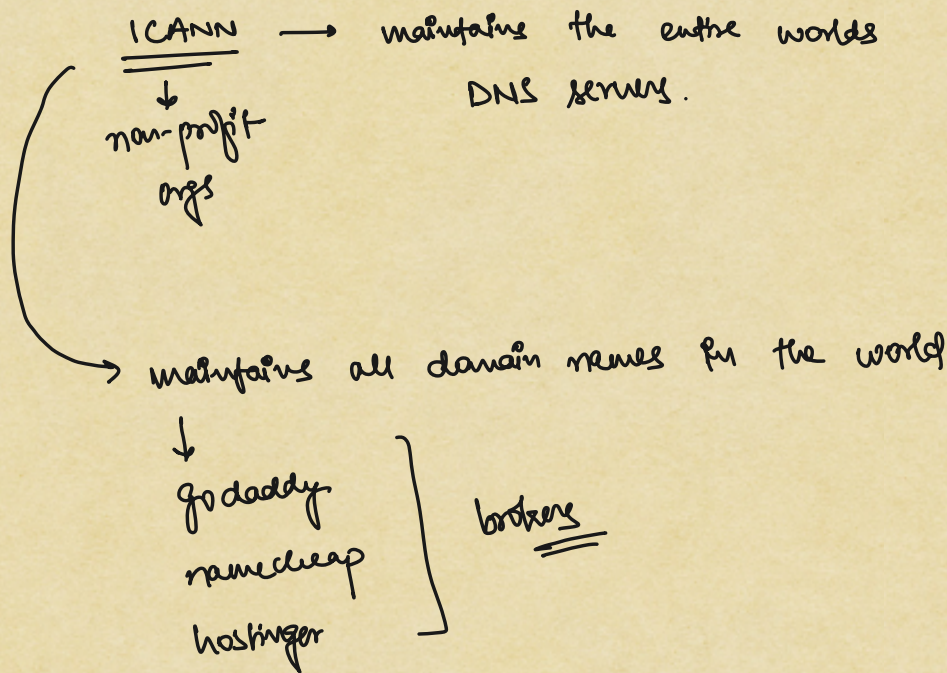 ICANN → maintains the entire worlds
DNS servers.
↓
non-profit
orgs
maintains all domain names in the world
↓
godaddy
namecheap
hostinger
brokers